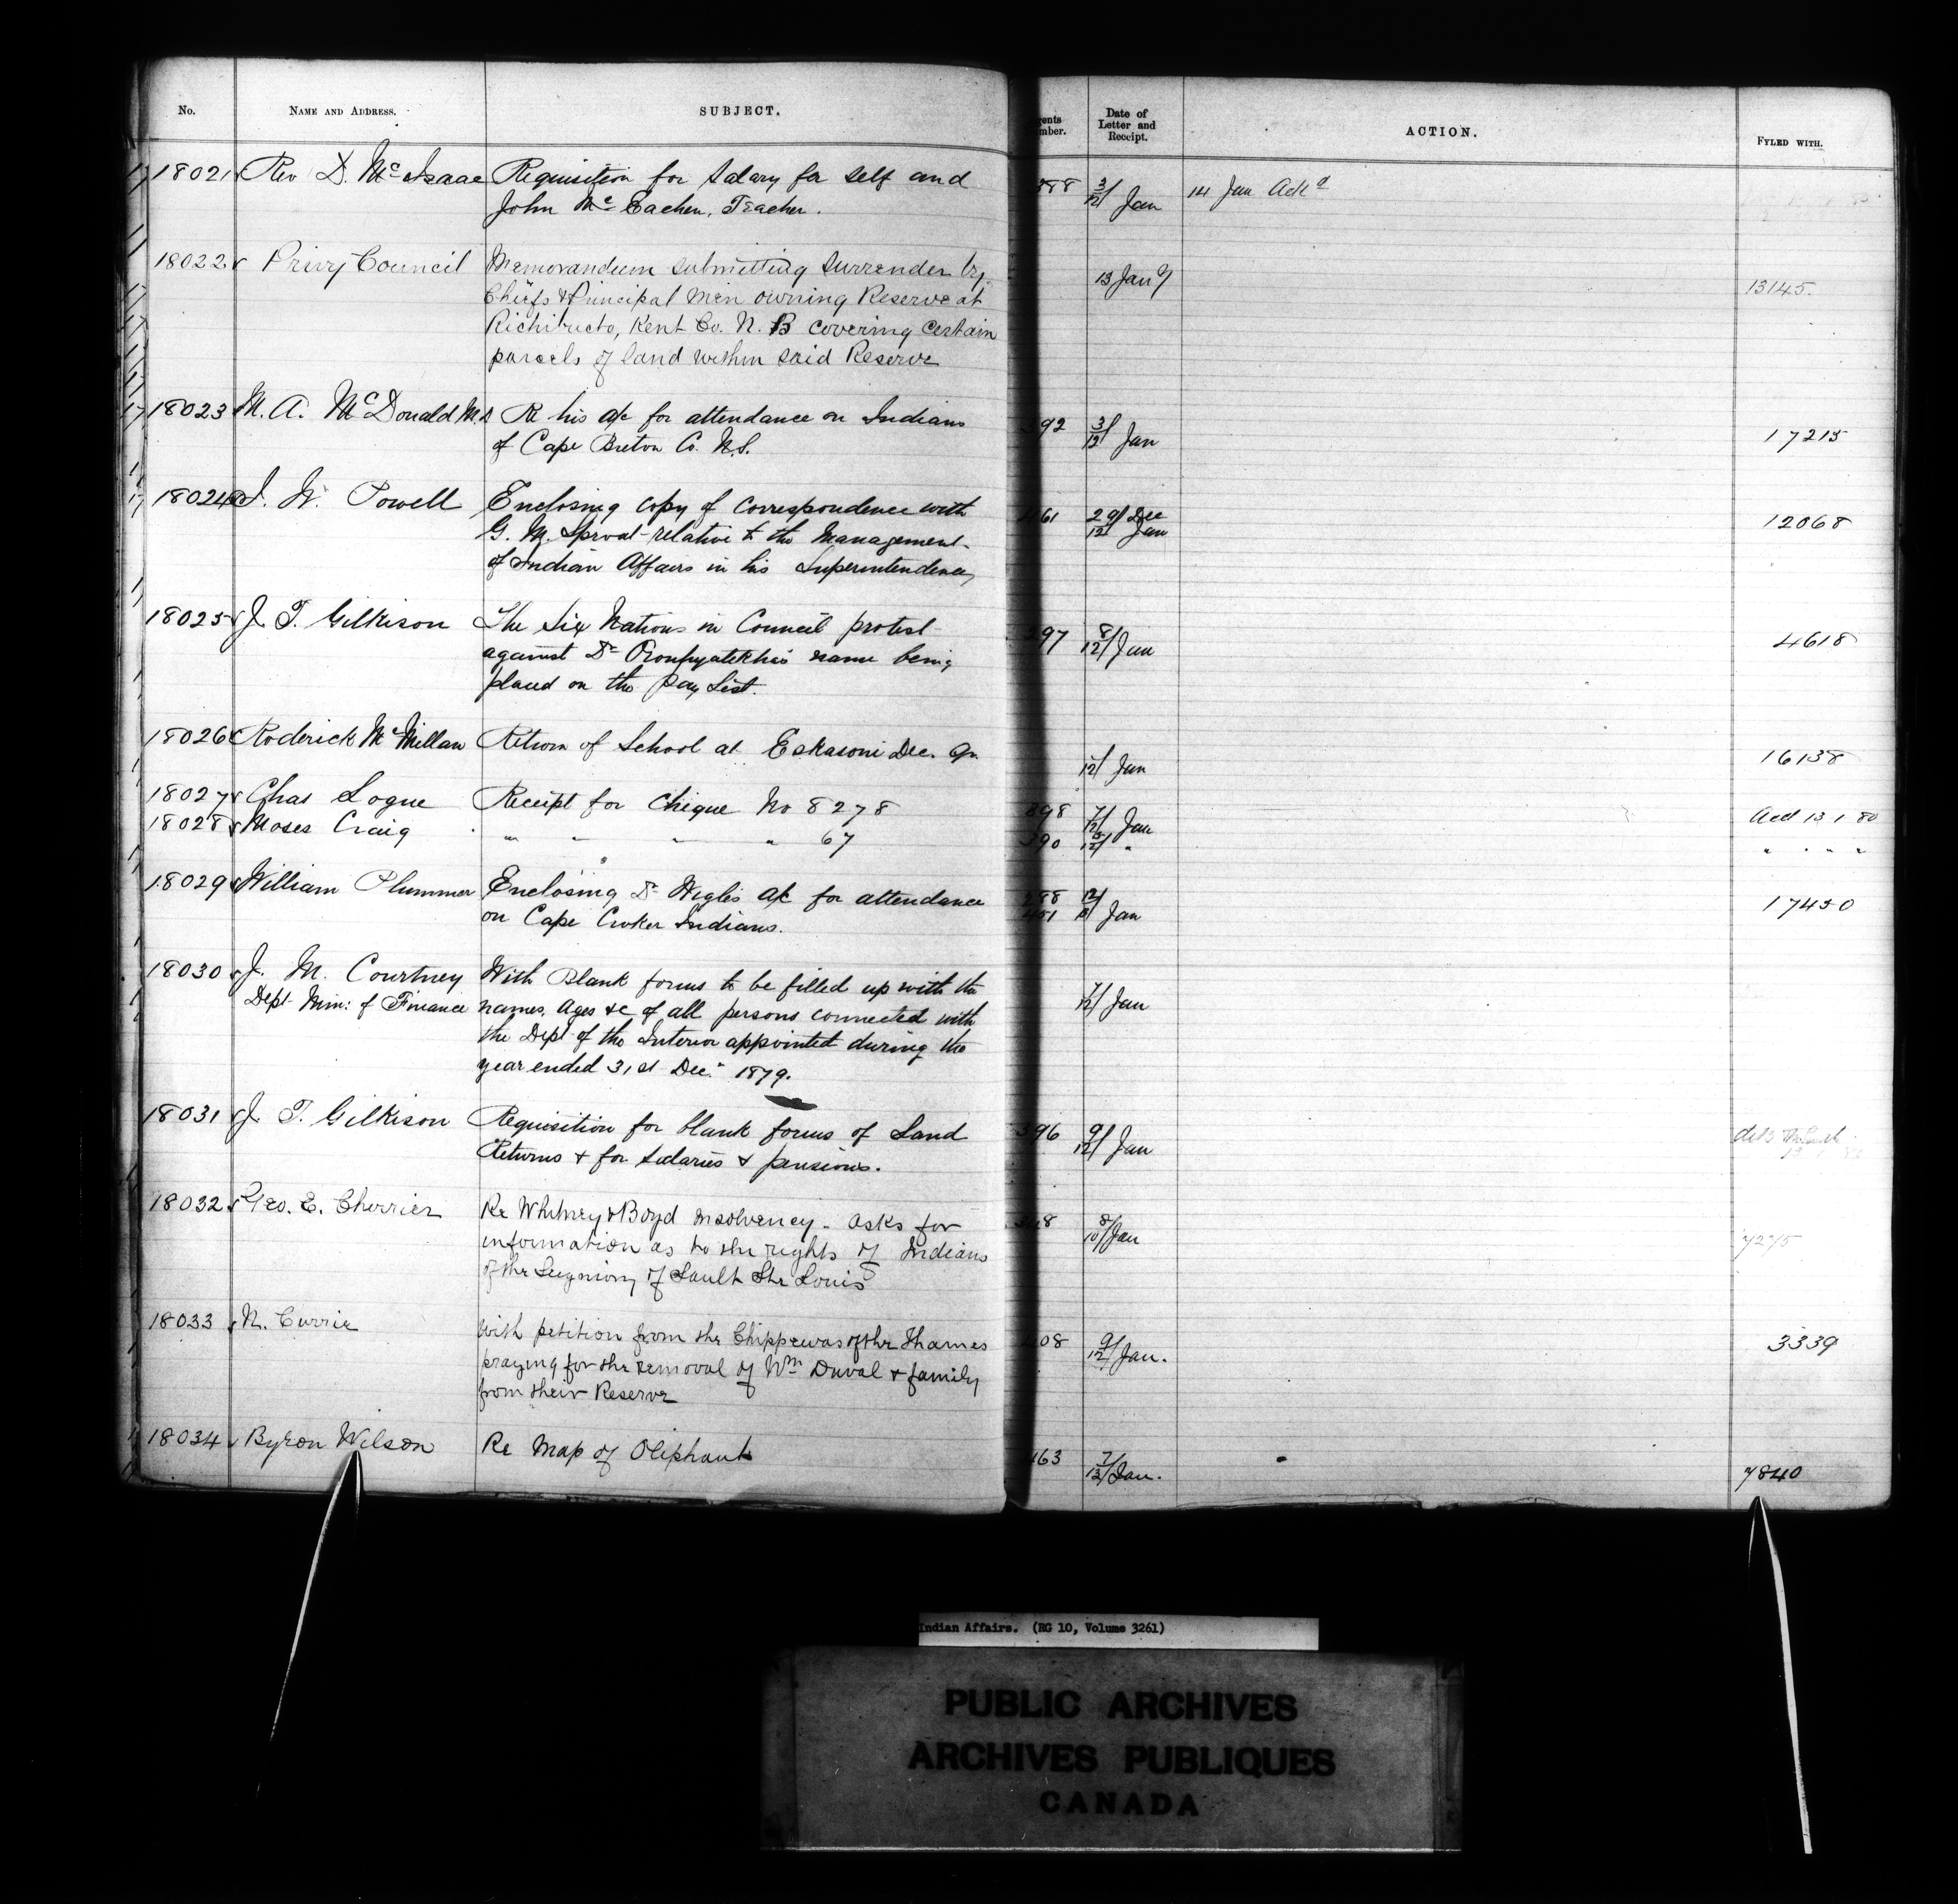 No. NAME AND ADDRESS. SUBJECT. gents mber. Date of Letter and Receipt. ACTION. FYLED WITH.
18021 Rev D. McIsaac Requisition for Salary for self and 388 3/12 Jan 14 Jan Ackd
John McEachen, Teacher.
18022 Privy Council Memorandum submitting Surrender by 13 Jan 13145.
Chiefs & Principal men owning Reserve at
Richibucto, Kent Co. N. B covering certain
parcels of land within said Reserve
18023 M. A. McDonald M.D Re his a/c for attendance on Indians 392 3/12 Jan 17215
of Cape Breton Co. N.S.
18024 I. W. Powell Enclosing copy of correspondence with 461 29/12 Dec Jan 12068
G. M. Sproat relative to the Management
of Indian Affairs in his Superintendency
18025 J. T. Gilkison The Six Nations in Council protest 397 8/12 Jan 4618
against Dr Oronhyatekha's name being
placed on the Pay List.
18026 Roderick McMillan Return of School at Eskasoni Dec. Qr. 12/ Jan 16138
18027 Chas Logue Receipt for Cheque No 8278 398 7/12 Jan Acct 13 1 80
18028 Moses Craig " " " " 67 390 5/12 " " " " "
18029 William Plummer Enclosing Dr Wigle's a/c for attendance 17450
on Cape Croker Indians. 451 Jan
18030 J. M. Courtney With Blank forms to be filled up with the
Dept Min: of Finance names, ages &c of all persons connected with 7/12 Jan
the Dept of the Interior appointed during the
year ended 31st Dec. 1879.
18031 J. T. Gilkison Requisition for blank forms of Land 396 9/12 Jan
Returns & for salaries & pensions.
18032 Geo. E. Cherrier Re Whitney & Boyd insolvency - asks for 8/10 Jan 7275
information as to the rights of Indians
of the Seigniory of Sault Ste Louis
18033 N. Currie With petition from the Chippewas of the Thames 408 9/12 Jan. 3339
praying for the removal of Wm Duval & family
from their Reserve
18034 Byron Wilson Re Map of Oliphant 463 7/12 Jan. 7840
Indian Affairs. (RG 10, Volume 3261)
PUBLIC ARCHIVES
ARCHIVES PUBLIQUES
CANADA